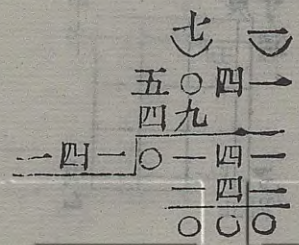 七一
五〇四一
四九
一四一〇一四一
一四一
〇〇〇